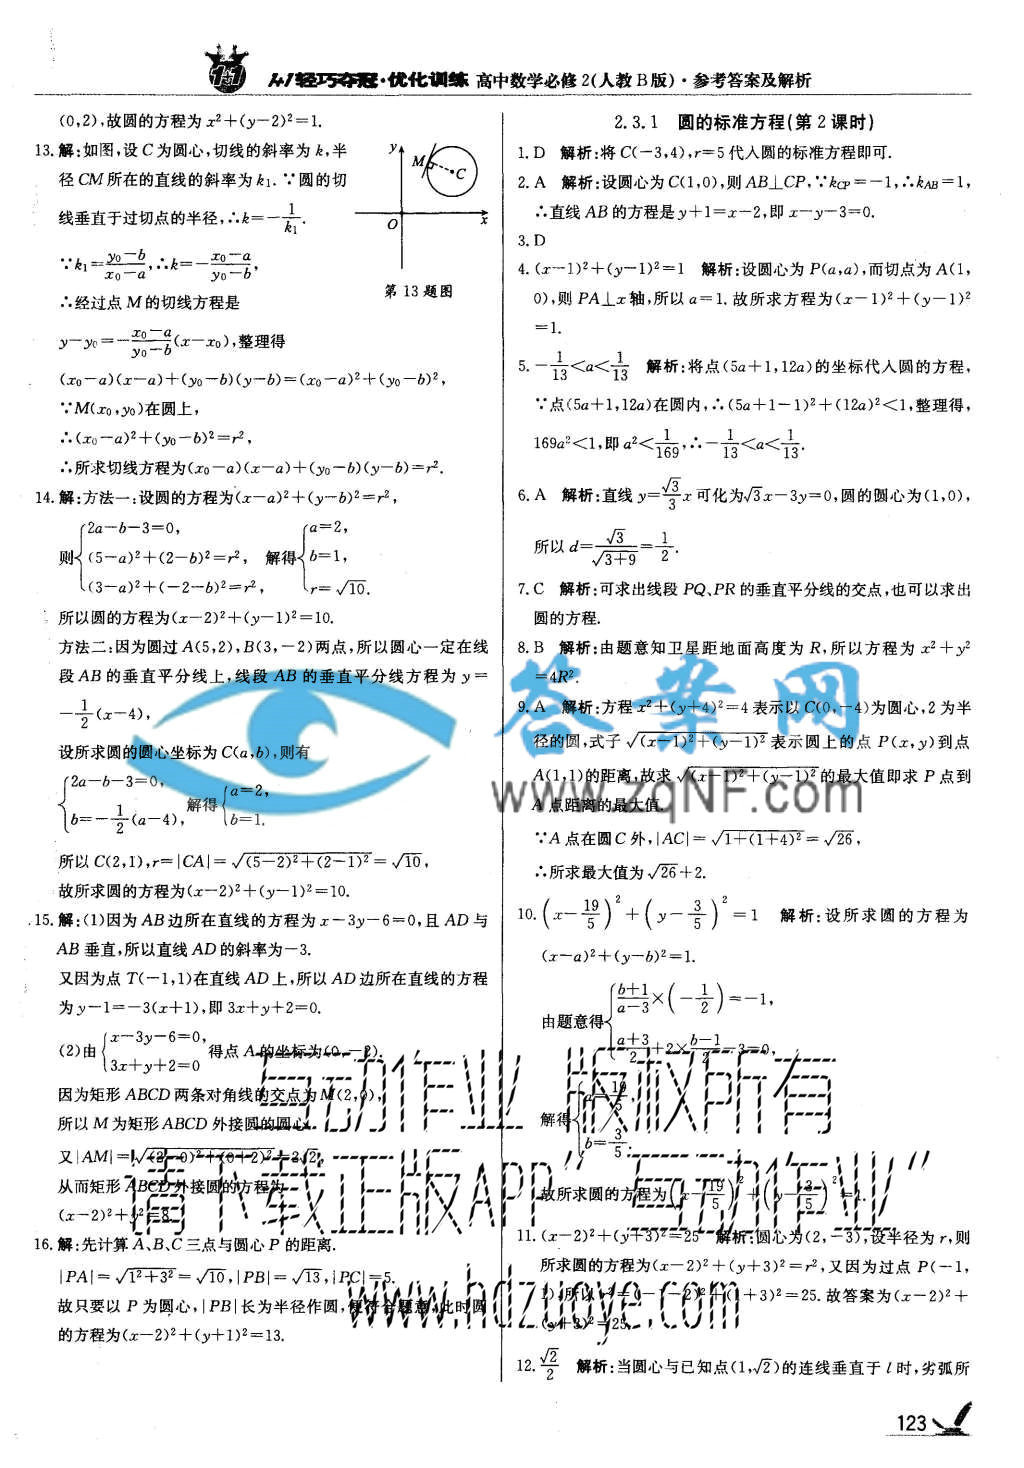 1+1轻巧夺冠·优化训练 高中数学必修2(人教B版)·参考答案及解析
(0,2),故圆的方程为x²+(y-2)²=1.
13. 解:如图,设C为圆心,切线的斜率为k,半
径CM所在的直线的斜率为k₁.∵圆的切
线垂直于过切点的半径,∴k=-1/k₁.
∵k₁=(y₀-b)/(x₀-a),∴k=-(x₀-a)/(y₀-b),
∴经过点M的切线方程是
y M C O x
第13题图
y-y₀=-(x₀-a)/(y₀-b)(x-x₀),整理得
(x₀-a)(x-a)+(y₀-b)(y-b)=(x₀-a)²+(y₀-b)²,
∵M(x₀,y₀)在圆上,
∴(x₀-a)²+(y₀-b)²=r²,
∴所求切线方程为(x₀-a)(x-a)+(y₀-b)(y-b)=r².
14. 解:方法一:设圆的方程为(x-a)²+(y-b)²=r²,
则{2a-b-3=0, (5-a)²+(2-b)²=r², (3-a)²+(-2-b)²=r², 解得{a=2, b=1, r=√10.
所以圆的方程为(x-2)²+(y-1)²=10.
方法二:因为圆过A(5,2),B(3,-2)两点,所以圆心一定在线
段AB的垂直平分线上,线段AB的垂直平分线方程为y=
-1/2(x-4),
设所求圆的圆心坐标为C(a,b),则有
{2a-b-3=0, b=-1/2(a-4), 解得{a=2, b=1.
所以C(2,1),r=|CA|=√((5-2)²+(2-1)²)=√10,
故所求圆的方程为(x-2)²+(y-1)²=10.
15. 解:(1)因为AB边所在直线的方程为x-3y-6=0,且AD与
AB垂直,所以直线AD的斜率为-3.
又因为点T(-1,1)在直线AD上,所以AD边所在直线的方程
为y-1=-3(x+1),即3x+y+2=0.
(2)由{x-3y-6=0, 3x+y+2=0 得点A的坐标为(0,-2).
因为矩形ABCD两条对角线的交点为M(2,0),
所以M为矩形ABCD外接圆的圆心.
又|AM|=√((2-0)²+(0+2)²)=2√2,
从而矩形ABCD外接圆的方程为
(x-2)²+y²=8.
16. 解:先计算A、B、C三点与圆心P的距离.
|PA|=√(1²+3²)=√10,|PB|=√13,|PC|=5.
故只要以P为圆心,|PB|长为半径作圆,便符合题意,此时圆
的方程为(x-2)²+(y+1)²=13.
2.3.1 圆的标准方程(第2课时)
1. D 解析:将C(-3,4),r=5代入圆的标准方程即可.
2. A 解析:设圆心为C(1,0),则AB⊥CP,∵k_CP=-1,∴k_AB=1,
∴直线AB的方程是y+1=x-2,即x-y-3=0.
3. D
4. (x-1)²+(y-1)²=1 解析:设圆心为P(a,a),而切点为A(1,
0),则PA⊥x轴,所以a=1.故所求方程为(x-1)²+(y-1)²
=1.
5. -1/13<a<1/13 解析:将点(5a+1,12a)的坐标代入圆的方程,
∵点(5a+1,12a)在圆内,∴(5a+1-1)²+(12a)²<1,整理得,
169a²<1,即a²<1/169,∴-1/13<a<1/13.
6. A 解析:直线y=√3/3x可化为√3x-3y=0,圆的圆心为(1,0),
所以d=√3/√(3+9)=1/2.
7. C 解析:可求出线段PQ、PR的垂直平分线的交点,也可以求出
圆的方程.
8. B 解析:由题意知卫星距地面高度为R,所以方程为x²+y²
=4R².
9. A 解析:方程x²+(y+4)²=4表示以C(0,-4)为圆心,2为半
径的圆,式子√((x-1)²+(y-1)²)表示圆上的点P(x,y)到点
A(1,1)的距离,故求√((x-1)²+(y-1)²)的最大值即求P点到
A点距离的最大值.
∵A点在圆C外,|AC|=√(1+(1+4)²)=√26,
∴所求最大值为√26+2.
10. (x-19/5)²+(y-3/5)²=1 解析:设所求圆的方程为
(x-a)²+(y-b)²=1.
由题意得{(b+1)/(a-3)×(-1/2)=-1, (a+3)/2+2×(b-1)/2-3=0,
解得{a=19/5, b=3/5.
故所求圆的方程为(x-19/5)²+(y-3/5)²=1.
11. (x-2)²+(y+3)²=25 解析:圆心为(2,-3),设半径为r,则
所求圆的方程为(x-2)²+(y+3)²=r²,又因为过点P(-1,
1),所以r²=(-1-2)²+(1+3)²=25.故答案为(x-2)²+
(y+3)²=25.
12. √2/2 解析:当圆心与已知点(1,√2)的连线垂直于l时,劣弧所
123
答案网
www.zqNF.com
互动作业 版权所有
请下载正版APP“互动作业”
www.hdzuoye.com